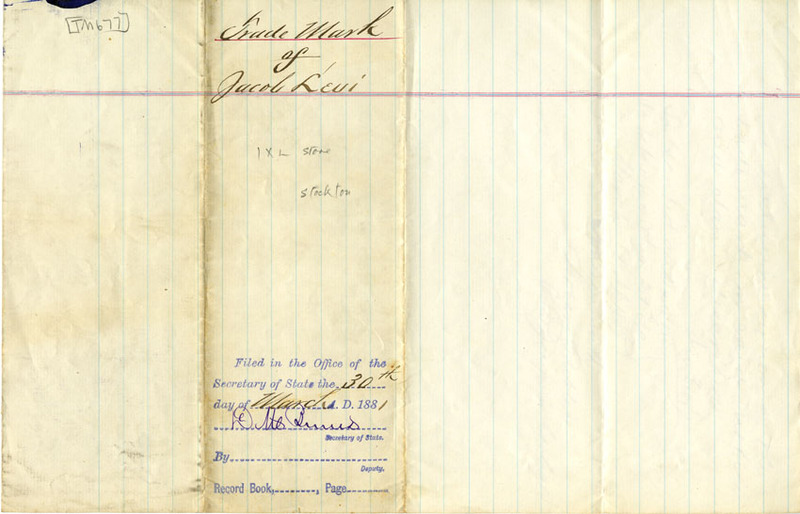 [TM677]
Trade Mark
of
Jacob Levi
1 X L store
Stockton
Filed in the Office of the
Secretary of State the 30th
day of March A. D. 1881
Secretary of State.
By
Deputy.
Record Book, , Page